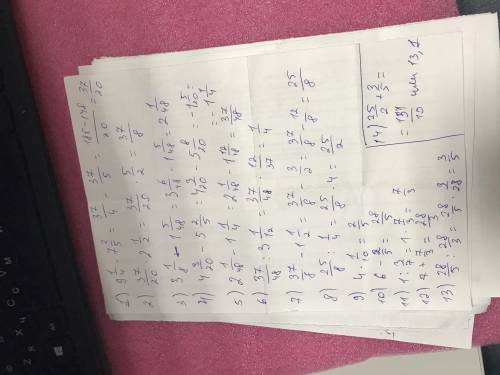 1) 9 1/4 - 7 2/5 = 37/4 - 37/5 = (185-148)/20 = 37/20
2) 37/20 · 2 1/2 = 37/20 · 5/2 = 37/8
3) 3 1/8 - 1 5/48 = 3 6/48 - 1 5/48 = 2 1/48
4) 4 3/20 - 5 2/5 = 4 3/20 - 5 8/20 = -1 5/20 =
= -1 1/4
5) 2 1/48 - 1 1/4 = 2 1/48 - 1 12/48 = 37/48
6) 37/48 : 3 1/12 = 37/48 · 12/37 = 1/4
7) 37/8 - 1 1/2 = 37/8 - 3/2 = 37/8 - 12/8 = 25/8
8) 25/8 : 1/4 = 25/8 · 4 = 25/2
9) 4 · 1/10 = 2/5
10) 6 - 2/5 = 28/5
11) 1 : 3/7 = 1 · 7/3 = 7/3
12) 7 + 7/3 = 28/3
13) 28/5 : 28/3 = 28/5 · 3/28 = 3/5
14) 25/2 + 3/5 =
= 131/10 или 13,1